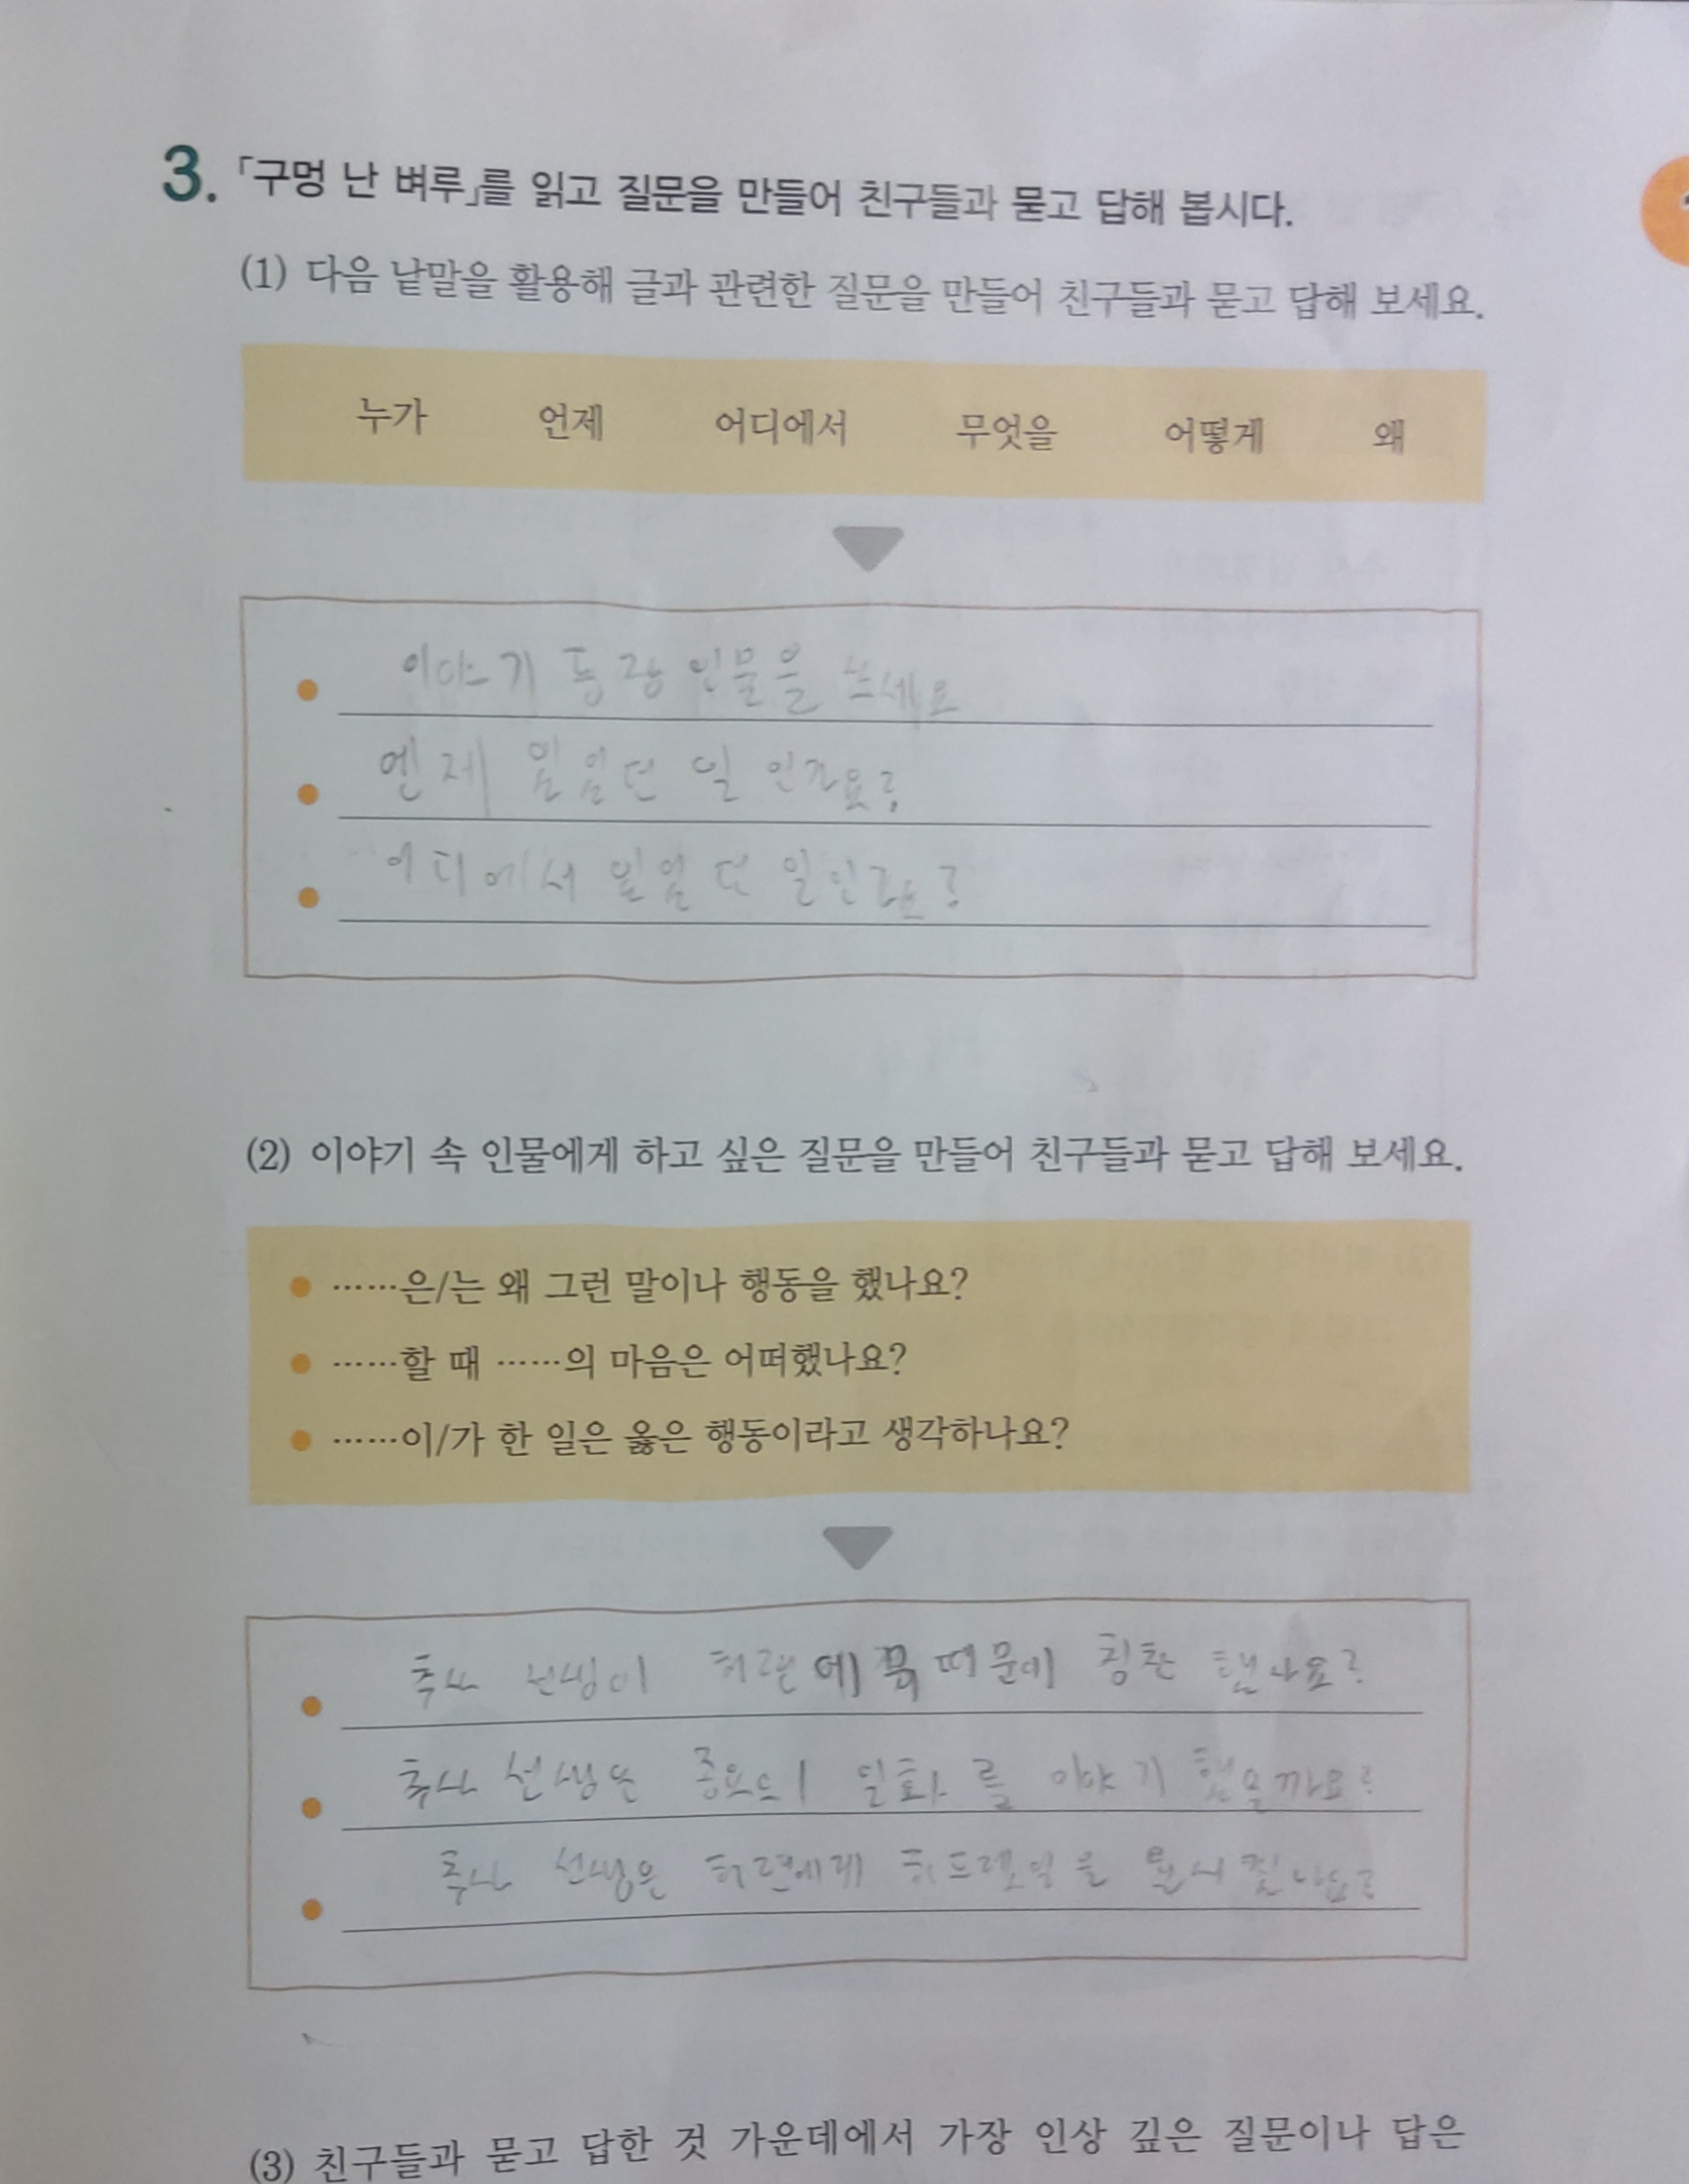 3. 「구멍 난 벼루」를 읽고 질문을 만들어 친구들과 묻고 답해 봅시다.
(1) 다음 낱말을 활용해 글과 관련한 질문을 만들어 친구들과 묻고 답해 보세요.
누가 언제 어디에서 무엇을 어떻게 왜
이야기 등장 인물을 쓰세요
엔제 일인가요?
어디에서 일인가요?
(2) 이야기 속 인물에게 하고 싶은 질문을 만들어 친구들과 묻고 답해 보세요.
……은/는 왜 그런 말이나 행동을 했나요?
……할 때 ……의 마음은 어떠했나요?
……이/가 한 일은 옳은 행동이라고 생각하나요?
추사 선생이 허련에 때문에 칭찬 했나요?
추사 선생은 일화를 이야기 했을까요?
추사 선생은 허련에게
(3) 친구들과 묻고 답한 것 가운데에서 가장 인상 깊은 질문이나 답은